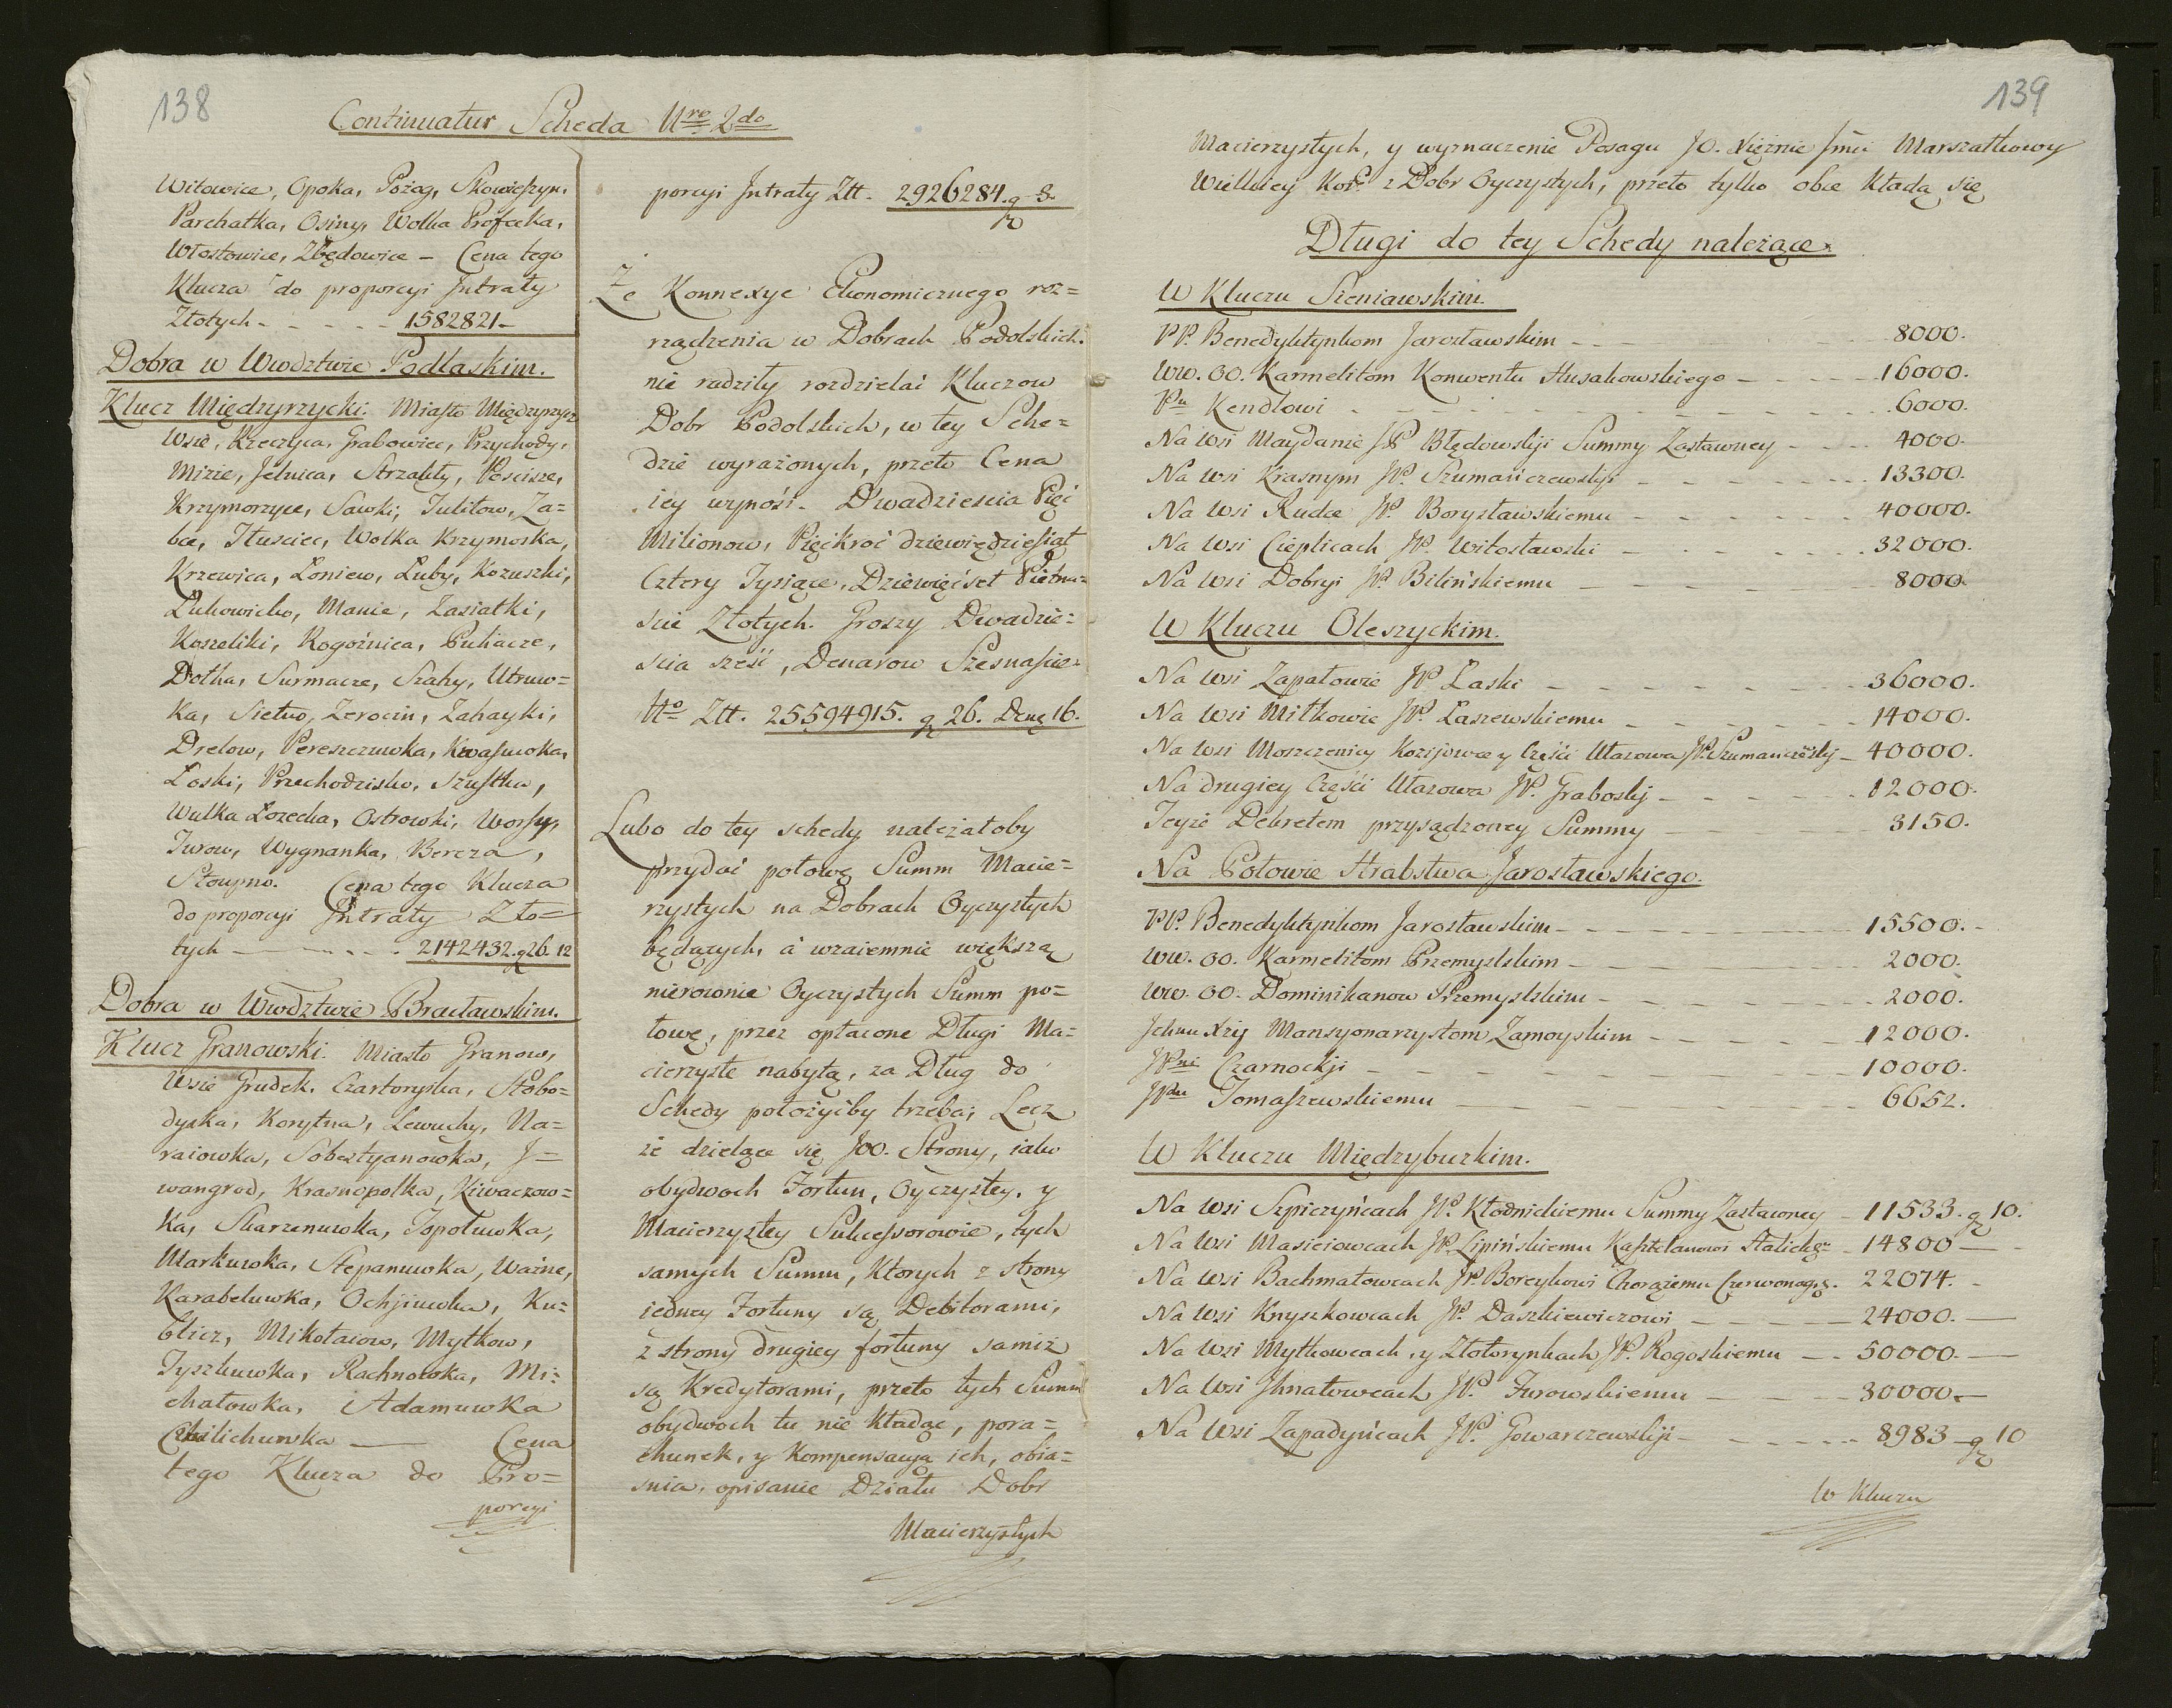 138
Continuatur Scheda Nro 2do
Witowice, Opoka, Pożag, Skowieszyn,
Parchatka, Osiny, Wolka Profecka,
Włostowice, Zbędowice – Cena tego
Klucza do proporcyi Jntraty
Złotych - - - - - 1582821 -
Dobra w Wwdztwie Podlaskim.
Klucz Międzyrzycki. Miasto Międzyrzyc
Wsie, Krzeczyca, Grabowiec, Przychody,
Misie, Jelnica, Strzałky, Poscisze,
Krzymoszyce, Sawki, Tulitow, Za=
bce, Tłusciec, Wolka Krzymoska,
Krzewica, Łoniew, Łuby, Kozuszki,
Łukowisko, Manie, Zasiatki,
Koszeliki, Rogoźnica, Puhacze,
Dołha, Surmacze, Szachy, Utruw=
ka, Sietno, Zerocin, Zahayki,
Drelow, Pereszczuwka, Kwasuwka,
Łoski, Przechodzisko, Szustka,
Wulka Łozecka, Ostrowki, Worsy,
Turow, Wygnanka, Bereza,
Stoupno. Cena tego Klucza
do proporcyi Jntraty Zło=
tych - - - - - 2142432. g 26. 12
Dobra w Wwdztwie Bracławskim.
Klucz Granowski. Miasto Granow,
Wsie Grudek, Czartoryska, Słobo=
dyska, Korytna, Lewuchy, Na=
raiowka, Sobestyanowka, J=
wangrod, Krasnopolka, Kiwaczow=
ka, Skarzenuwka, Topoluwka,
Markuwka, Stepanuwka, Ważne,
Karabeluwka, Ochjiuwka, Ku=
blicz, Mikołaiow, Mytkow,
Tyszkuwka, Rachnowka, Mi=
chałowka, Adamuwka
Chilichuwka — Cena
tego Klucza do Pro=
porcyi
porcyi Jntraty Złt. 2926284. g 3.
Że Konnexye Ekonomicznego roz=
rządzenia w Dobrach Podolskich
nie radziły rozdzielać Kluczow
Dobr Podolskich, w tey Sche=
dzie wyrażonych, przeto Cena
iey wynosi. Dwadziescia Pięć
Milionow, Pięćkroć dziewięćdziesiąt
Cztery Tysiące, Dziewięćset Piętna=
scie Złotych. Groszy Dwadzie=
scia sześć, Denarow Szesnascie.
No Złt. 25594915. g 26. Denr 16.
Lubo do tey schedy należałoby
przydać połowę Summ Macie=
rzystych na Dobrach Oyczystych
będących, a wzaiemnie większą
nierownie Oyczystych Summ po=
łowę, przez opłacone Długi Ma=
cierzyste nabytą, za Dług do
Schedy położyćby trzeba; Lecz
że dzielące się JOO. Strony, iako
obydwoch Fortun, Oyczystey, y
Macierzystey Sukcessorowie, tych
samych Summ, ktorych z strony
iedney Fortuny są Debitorami,
z strony drugiey fortuny samiż
są Kredytorami, przeto tych Summ
obydwoch tu nie kładąc, pora=
chunek, y kompensacyą ich, obia=
snia, opisanie Działu Dobr
Macierzystych
139
Macierzystych, y wyznaczenie Posagu JO. Xiężnie Jmci Marszałkowy
Wielkiey Kor. z Dobr Oyczystych, przeto tylko obce kładą się
Długi do tey Schedy należące.
W Kluczu Sieniawskim.
PP. Benedyktynkom Jarosławskim - - - 8000.
WW. OO. Karmelitom Konwentu Husakowskiego - - - 16000.
Pu Kendlowi - - - 6000.
Na Wsi Maydanie JP Błędowskji Summy Zastawney - - - 4000.
Na Wsi Krasnym JP. Szumańczewskji - - - 13300.
Na Wsi Rudce JP. Borysławskiemu - - - 40000.
Na Wsi Cieplicach JP. Witosławski - - - 32000.
Na Wsi Dobryi JP. Bilińskiemu - - - 8000.
W Kluczu Oleszyckim.
Na Wsi Zapałowie JP Łaski - - - 36000.
Na Wsi Miłkowie JP. Łaszewskiemu - - - 14000.
Na Wsi Moszczenicy Kozijowce y Części Ułazowa JP. Szumanczewskj - 40000.
Na drugiey Części Ułazowa JP. Graboskj - - - 12000.
Teyże Dekretem przysądzoney Summy - - - 3150.
Na Połowie Hrabstwa Jarosławskiego.
PP. Benedyktynkom Jarosławskim - - - 15500. -
WW. OO. Karmelitom Przemyslskim - - - 2000.
WW. OO. Dominikanow Przemyslskim - - - 2000.
Jchmu Xży Mansyonarzystom Zamoyskim - - - 12000.
JPni Czarnockji - - - 10000.
JPanu Tomaszewskiemu - - - 6652.
W Kluczu Międzyburkim.
Na Wsi Szpiczyńcach JP. Kłodnickiemu Summy Zastawney - 11533. g 10.
Na Wsi Masieiowcach JP. Lipińskiemu Kasztelanowi Halickgo - 14800 —
Na Wsi Bachmatowcach JP. Boreykowi Chorążemu Czerwonogro. 22074. -
Na Wsi Knyszkowcach JP. Daszkiewiczowi - - - 24000. —
Na Wsi Mytkowcach, y Złotorynkach JP. Rogoskiemu - - 50000. —
Na Wsi Jhnatowcach JP. Jurowskiemu - - - 30000. —
Na Wsi Zapadyńcach JP. Gowarczewskji - - - 8983 - g 10
W Kluczu